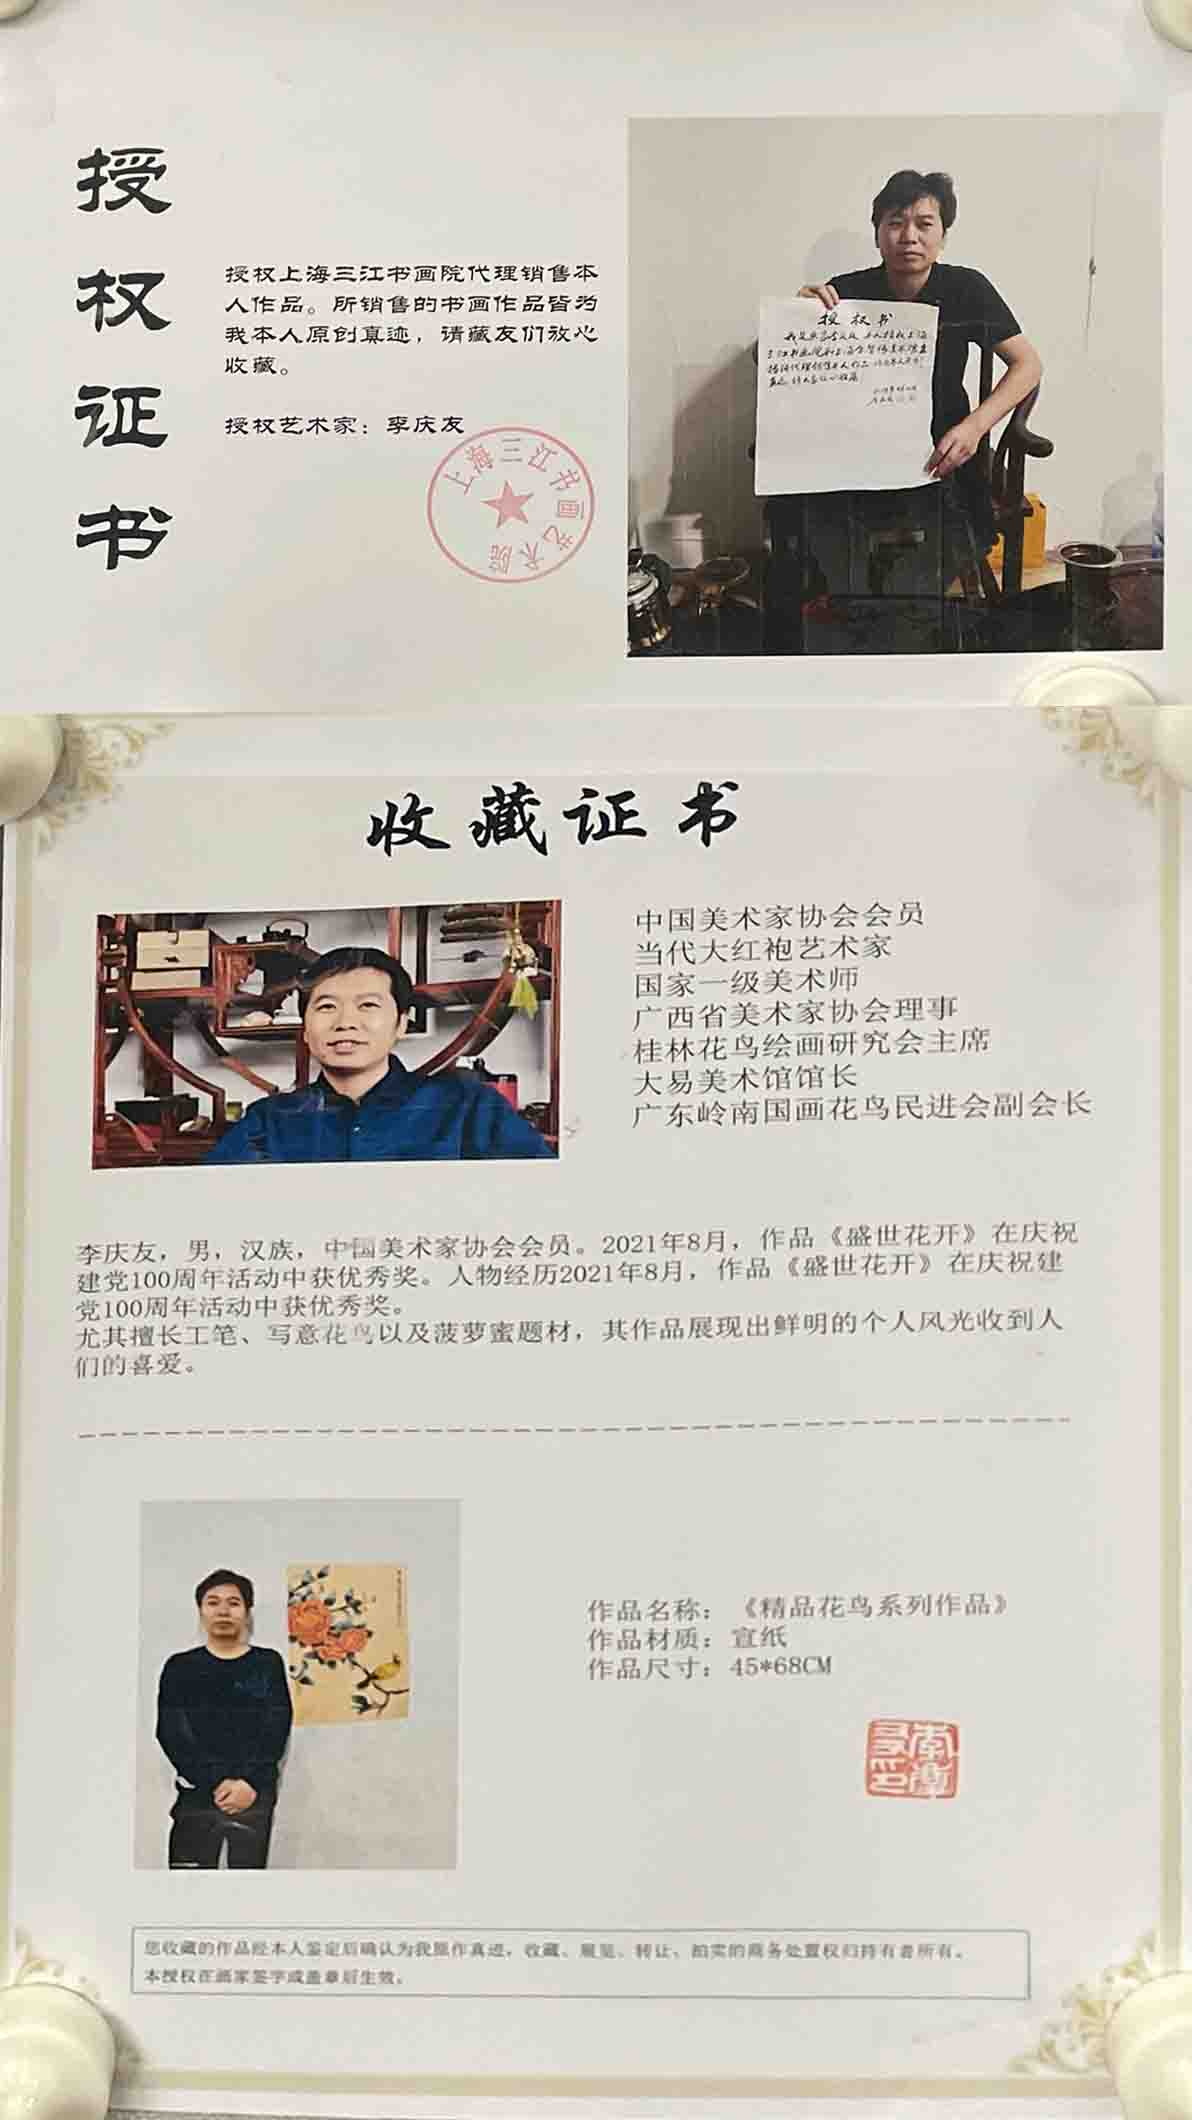 授权证书
授权上海三江书画院代理销售本
人作品。所销售的书画作品皆为
我本人原创真迹，请藏友们放心
收藏。
授权艺术家：李庆友
上海三江书画艺术院
授权书
收藏证书
中国美术家协会会员
当代大红袍艺术家
国家一级美术师
广西省美术家协会理事
桂林花鸟绘画研究会主席
大易美术馆馆长
广东岭南国画花鸟民进会副会长
李庆友，男，汉族，中国美术家协会会员。2021年8月，作品《盛世花开》在庆祝
建党100周年活动中获优秀奖。人物经历2021年8月，作品《盛世花开》在庆祝建
党100周年活动中获优秀奖。
尤其擅长工笔、写意花鸟以及菠萝蜜题材，其作品展现出鲜明的个人风光收到人
们的喜爱。
作品名称：《精品花鸟系列作品》
作品材质：宣纸
作品尺寸：45*68CM
您收藏的作品经本人鉴定后确认为我原作真迹，收藏、展览、转让、拍卖的商务处置权归持有者所有。
本授权在画家签字或盖章后生效。